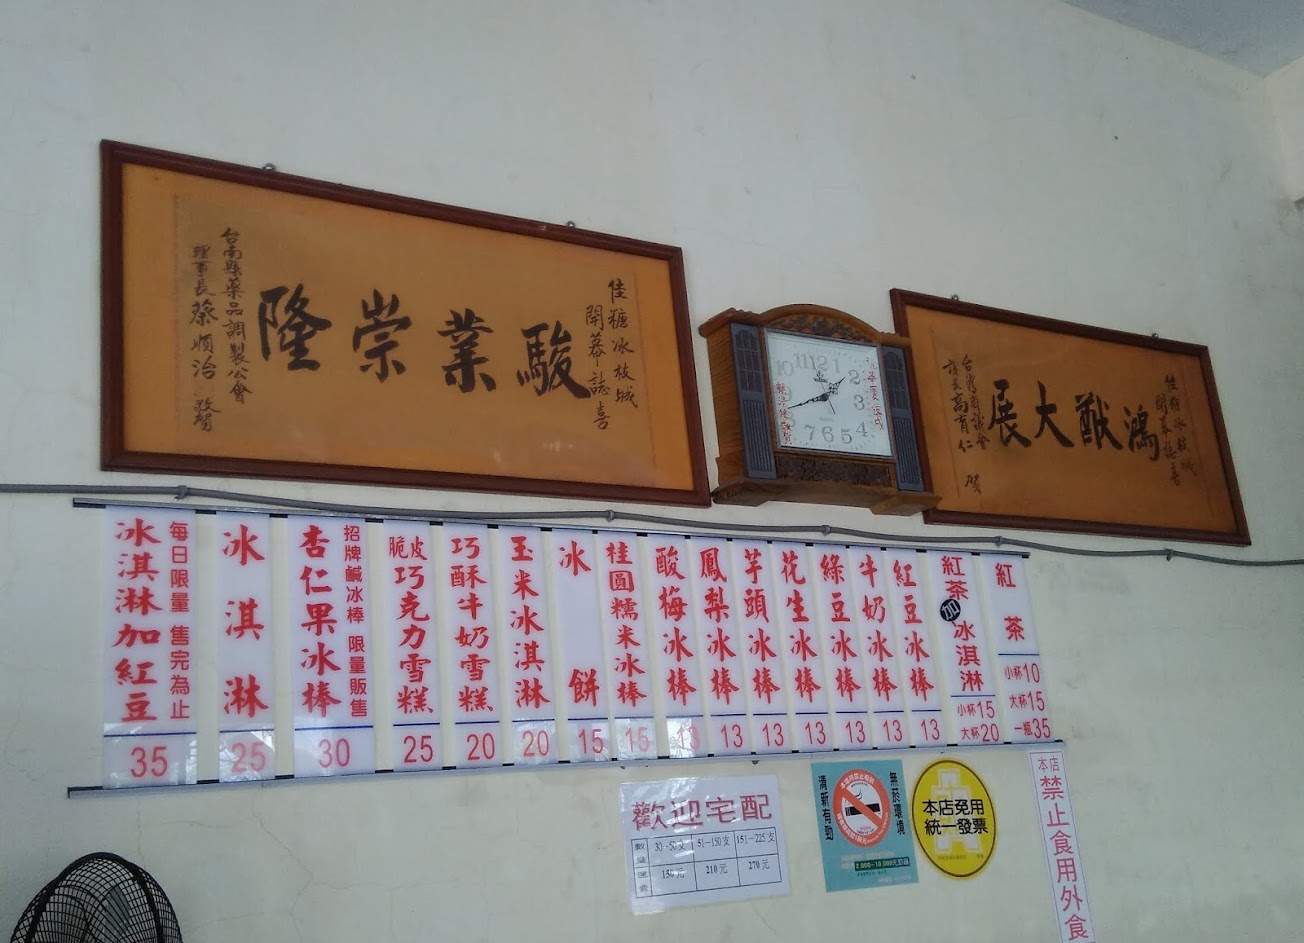 佳糖冰枝城
開幕誌喜
駿業崇隆
台南縣藥品調製公會
理事長蔡順治 敬賀
佳糖冰枝城
開幕誌喜
鴻猷大展
台灣省議會
議長高育仁 賀
12
1
2
3
4
5
6
7
8
10
11
紅茶
小杯10
大杯15
一瓶35
紅茶加冰淇淋
小杯15
大杯20
紅豆冰棒
13
牛奶冰棒
13
綠豆冰棒
13
花生冰棒
13
芋頭冰棒
13
鳳梨冰棒
13
酸梅冰棒
13
桂圓糯米冰棒
15
冰餅
15
玉米冰淇淋
20
巧酥牛奶雪糕
20
脆皮巧克力雪糕
25
招牌鹹冰棒 限量販售
杏仁果冰棒
30
冰淇淋
25
每日限量 售完為止
冰淇淋加紅豆
35
歡迎宅配
數量 30-50支 51-150支 151-225支
運費 150元 210元 270元
無菸環境
清新有勁
2,000~10,000元罰鍰
本店免用
統一發票
本店
禁止食用外食